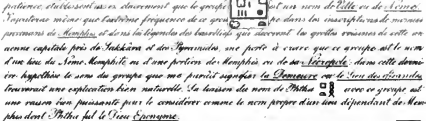 patience, établissent assez clairement que le groupe est un nom de Ville ou de Nôme.
J'ajouterai même que l'extrême fréquence de ce groupe dans les inscriptions de momies
provenant de Memphis et dans les légendes des bas-reliefs qui décorent les grottes voisines de cette an-
cienne capitale près de Sakkara et des Pyramides, me porte à croire que ce groupe est le nom
d'un lieu du Nôme Memphite ou d'une portion de Memphis ou de sa Nécropole: dans cette derni-
ère hypothèse le sens du groupe qui me paraît signifier la Demeure ou le Lieu des offrandes
trouverait une explication bien naturelle. La liaison du nom de Phtha avec ce groupe est
une raison bien puissante pour le considérer comme le nom propre d'un lieu dépendant de Mem-
phis dont Phtha fut le Dieu Eponyme.